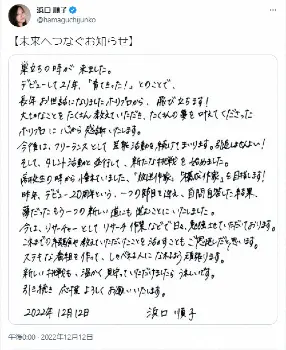 浜口 順子
@hamaguchijunko
【未来へつなぐお知らせ】
巣立ちの時が来ました。
デビューして21年、「育てきった!」とのことで、
長年お世話になりましたホリプロから、飛び立ちます!
大切なことをたくさん教えていただき、たくさんの夢を叶えてくださった
ホリプロに心から感謝いたします。
今後は、フリーランスとして芸能活動を続けてまいります。引退はなしよ!
そして、タレント活動と並行して、新たな挑戦を始めました。
高校生の時から憧れていました、「放送作家」「構成作家」を目指します!
昨年、デビュー20周年という、一つの節目を迎え、自問自答した結果、
夢だったもう一つの新しい道にも進むことにいたしました。
今は、リサーチャーとしてリサーチ作業などで日々、勉強させていただいております。
これまでの経験や教えていただいたことを活かすことも、ご恩返しだと思います。
ステキな番組を作って、しゃべれる人になれるよう頑張ります。
新しい挑戦も、温かく見守っていただけましたらうれしいです。
引き続き応援よろしくお願いいたします。
2022年12月12日 浜口 順子
午後0:00 · 2022年12月12日